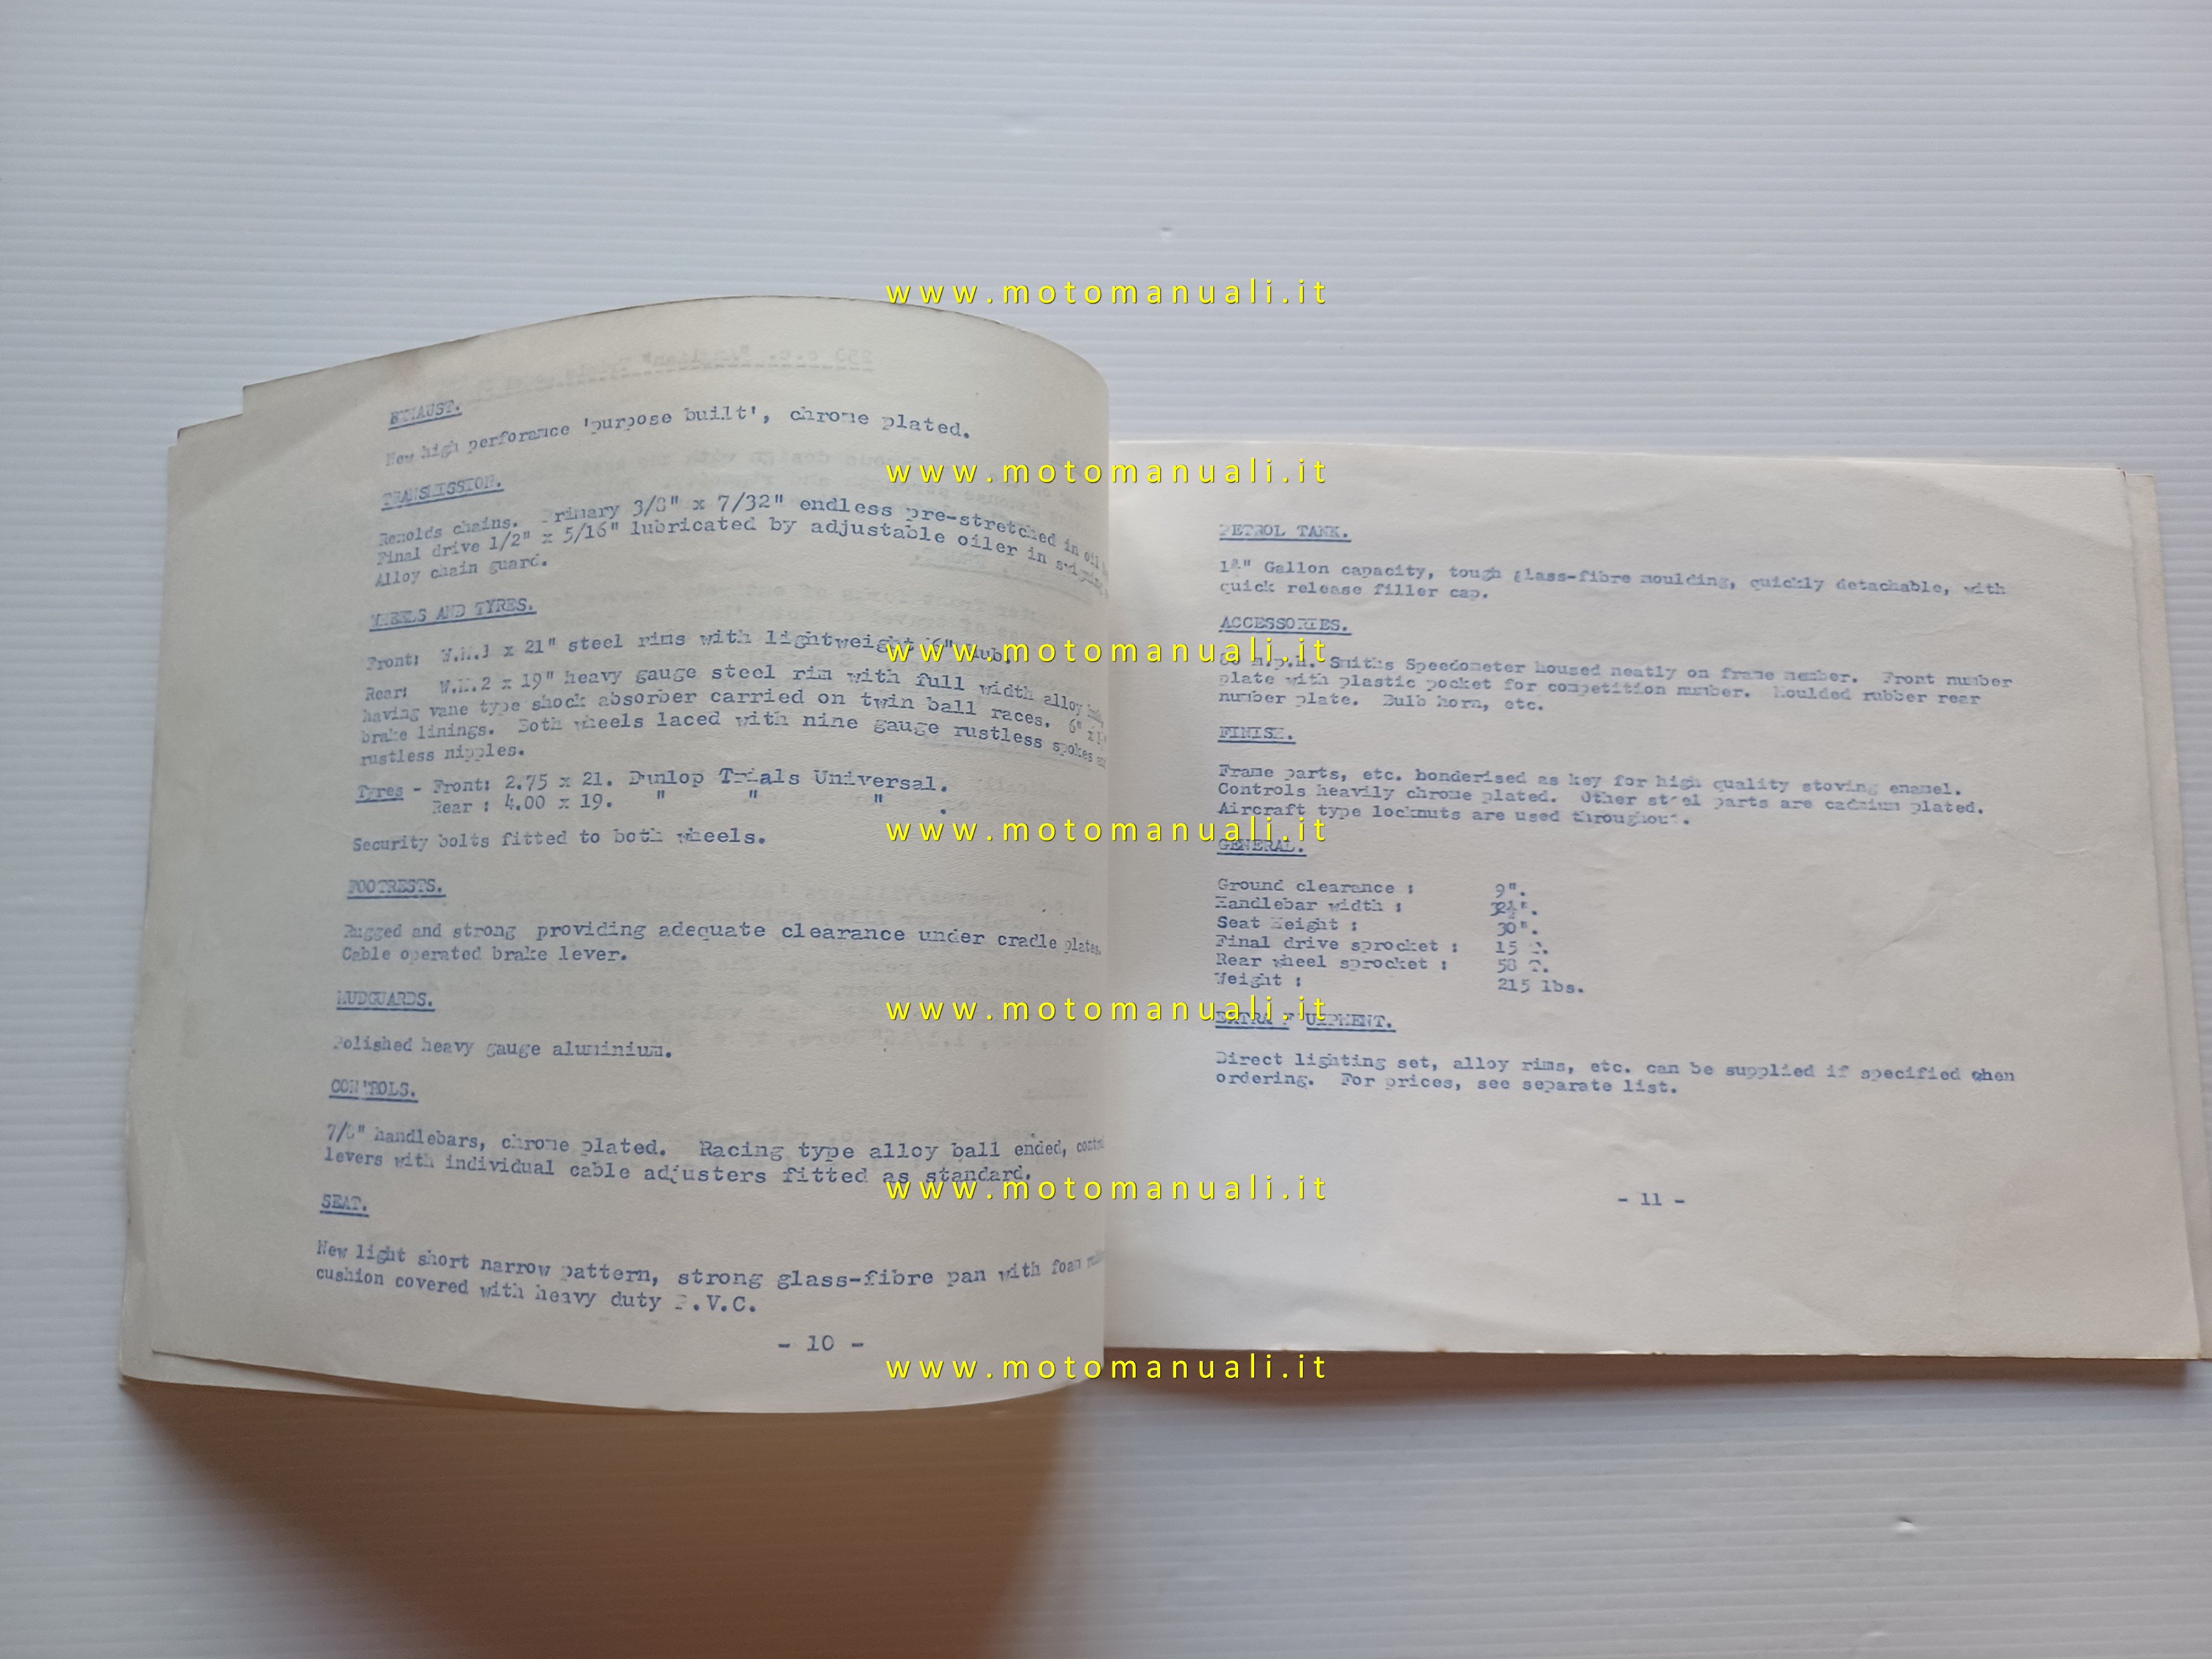 EXHAUST.
New high perforamce 'purpose built', chrome plated.
TRANSMISSION.
Renolds chains. Primary 3/8" x 7/32" endless pre-stretched in oil
Final drive 1/2" x 5/16" lubricated by adjustable oiler in swinging
Alloy chain guard.
WHEELS AND TYRES.
Front: W.M.1 x 21" steel rims with lightweight 6" hub.
Rear: W.M.2 x 19" heavy gauge steel rim with full width alloy hub,
having vane type shock absorber carried on twin ball races. 6" x
brake linings. Both wheels laced with nine gauge rustless spokes and
rustless nipples.
Tyres - Front: 2.75 x 21. Dunlop Trials Universal.
Rear : 4.00 x 19. " " " .
Security bolts fitted to both wheels.
FOOTRESTS.
Rugged and strong providing adequate clearance under cradle plates.
Cable operated brake lever.
MUDGUARDS.
Polished heavy gauge aluminium.
CONTROLS.
7/8" handlebars, chrome plated. Racing type alloy ball ended, control
levers with individual cable adjusters fitted as standard.
SEAT.
New light short narrow pattern, strong glass-fibre pan with foam
cushion covered with heavy duty P.V.C.
- 10 -
PETROL TANK.
Gallon capacity, tough glass-fibre moulding, quickly detachable, with
quick release filler cap.
ACCESSORIES.
80 m.p.h. Smiths Speedometer housed neatly on frame member. Front number
plate with plastic pocket for competition number. Moulded rubber rear
number plate. Bulb horn, etc.
FINISH.
Frame parts, etc. bonderised as key for high quality stoving enamel.
Controls heavily chrome plated. Other steel parts are cadmium plated.
Aircraft type locknuts are used throughout.
GENERAL.
Ground clearance : 9".
Handlebar width : 32½".
Seat Height : 30".
Final drive sprocket : 15 T.
Rear wheel sprocket : 58 T.
Weight : 215 lbs.
EXTRA EQUIPMENT.
Direct lighting set, alloy rims, etc. can be supplied if specified when
ordering. For prices, see separate list.
- 11 -
www.motomanuali.it
www.motomanuali.it
www.motomanuali.it
www.motomanuali.it
www.motomanuali.it
www.motomanuali.it
www.motomanuali.it